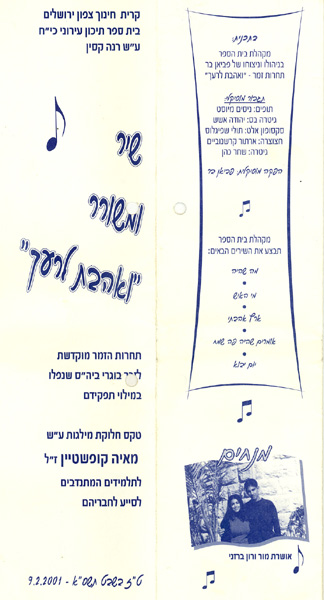 קרית חינוך צפון ירושלים
בית ספר תיכון עירוני כי"ח
ע"ש רנה קסין
שיר
ומשורר
"ואהבת לרעך"
תחרות הזמר מוקדשת
לזכר בוגרי ביה"ס שנפלו
במילוי תפקידם
טקס חלוקת מילגות ע"ש
מאיה קופשטיין ז"ל
לתלמידים המתנדבים
לסייע לחבריהם
ט"ז בשבט תשס"א - 9.2.2001
בתכנית:
מקהלת בית הספר
בניהולו וניצוחו של פביאן בר
תחרות זמר - "ואהבת לרעך"
תגבור מוסיקלי:
תופים: ניסים מיוסט
גיטרה בס: יהודה אשש
סקסופון אלט: תולי שפיגלוס
חצוצרה: ארתור קרשמבריס
גיטרה: שחר כהן
הפקה מוסיקלית: פביאן בר
מקהלת בית הספר
תבצע את השירים הבאים:
מה שהיה
מי האש
ארץ אהבתי
אומרים שהיה פה שמח
יום יבוא
מנחים
אושרת מור ורון ברזני